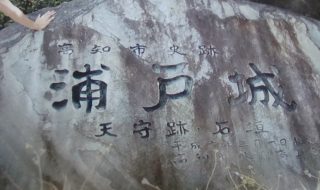 高知市史跡
浦戸城
天守跡・石垣